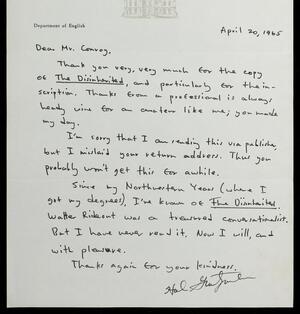 Department of English
April 20, 1965
Dear Mr. Conroy,
Thank you very, very much for the copy
of The Disinherited, and particularly for the in-
scription. Thanks from a professional is always
heady wine for an amateur like me; you made
my day.
I'm sorry that I am sending this via publisher,
but I mislaid your return address. Thus you
probably won't get this for awhile.
Since my Northwestern Years (where I
got my degrees), I've known of The Disinherited.
Walter Rideout was a treasured conversationalist.
But I have never read it. Now I will, and
with pleasure.
Thanks again for your kindness.
Hal